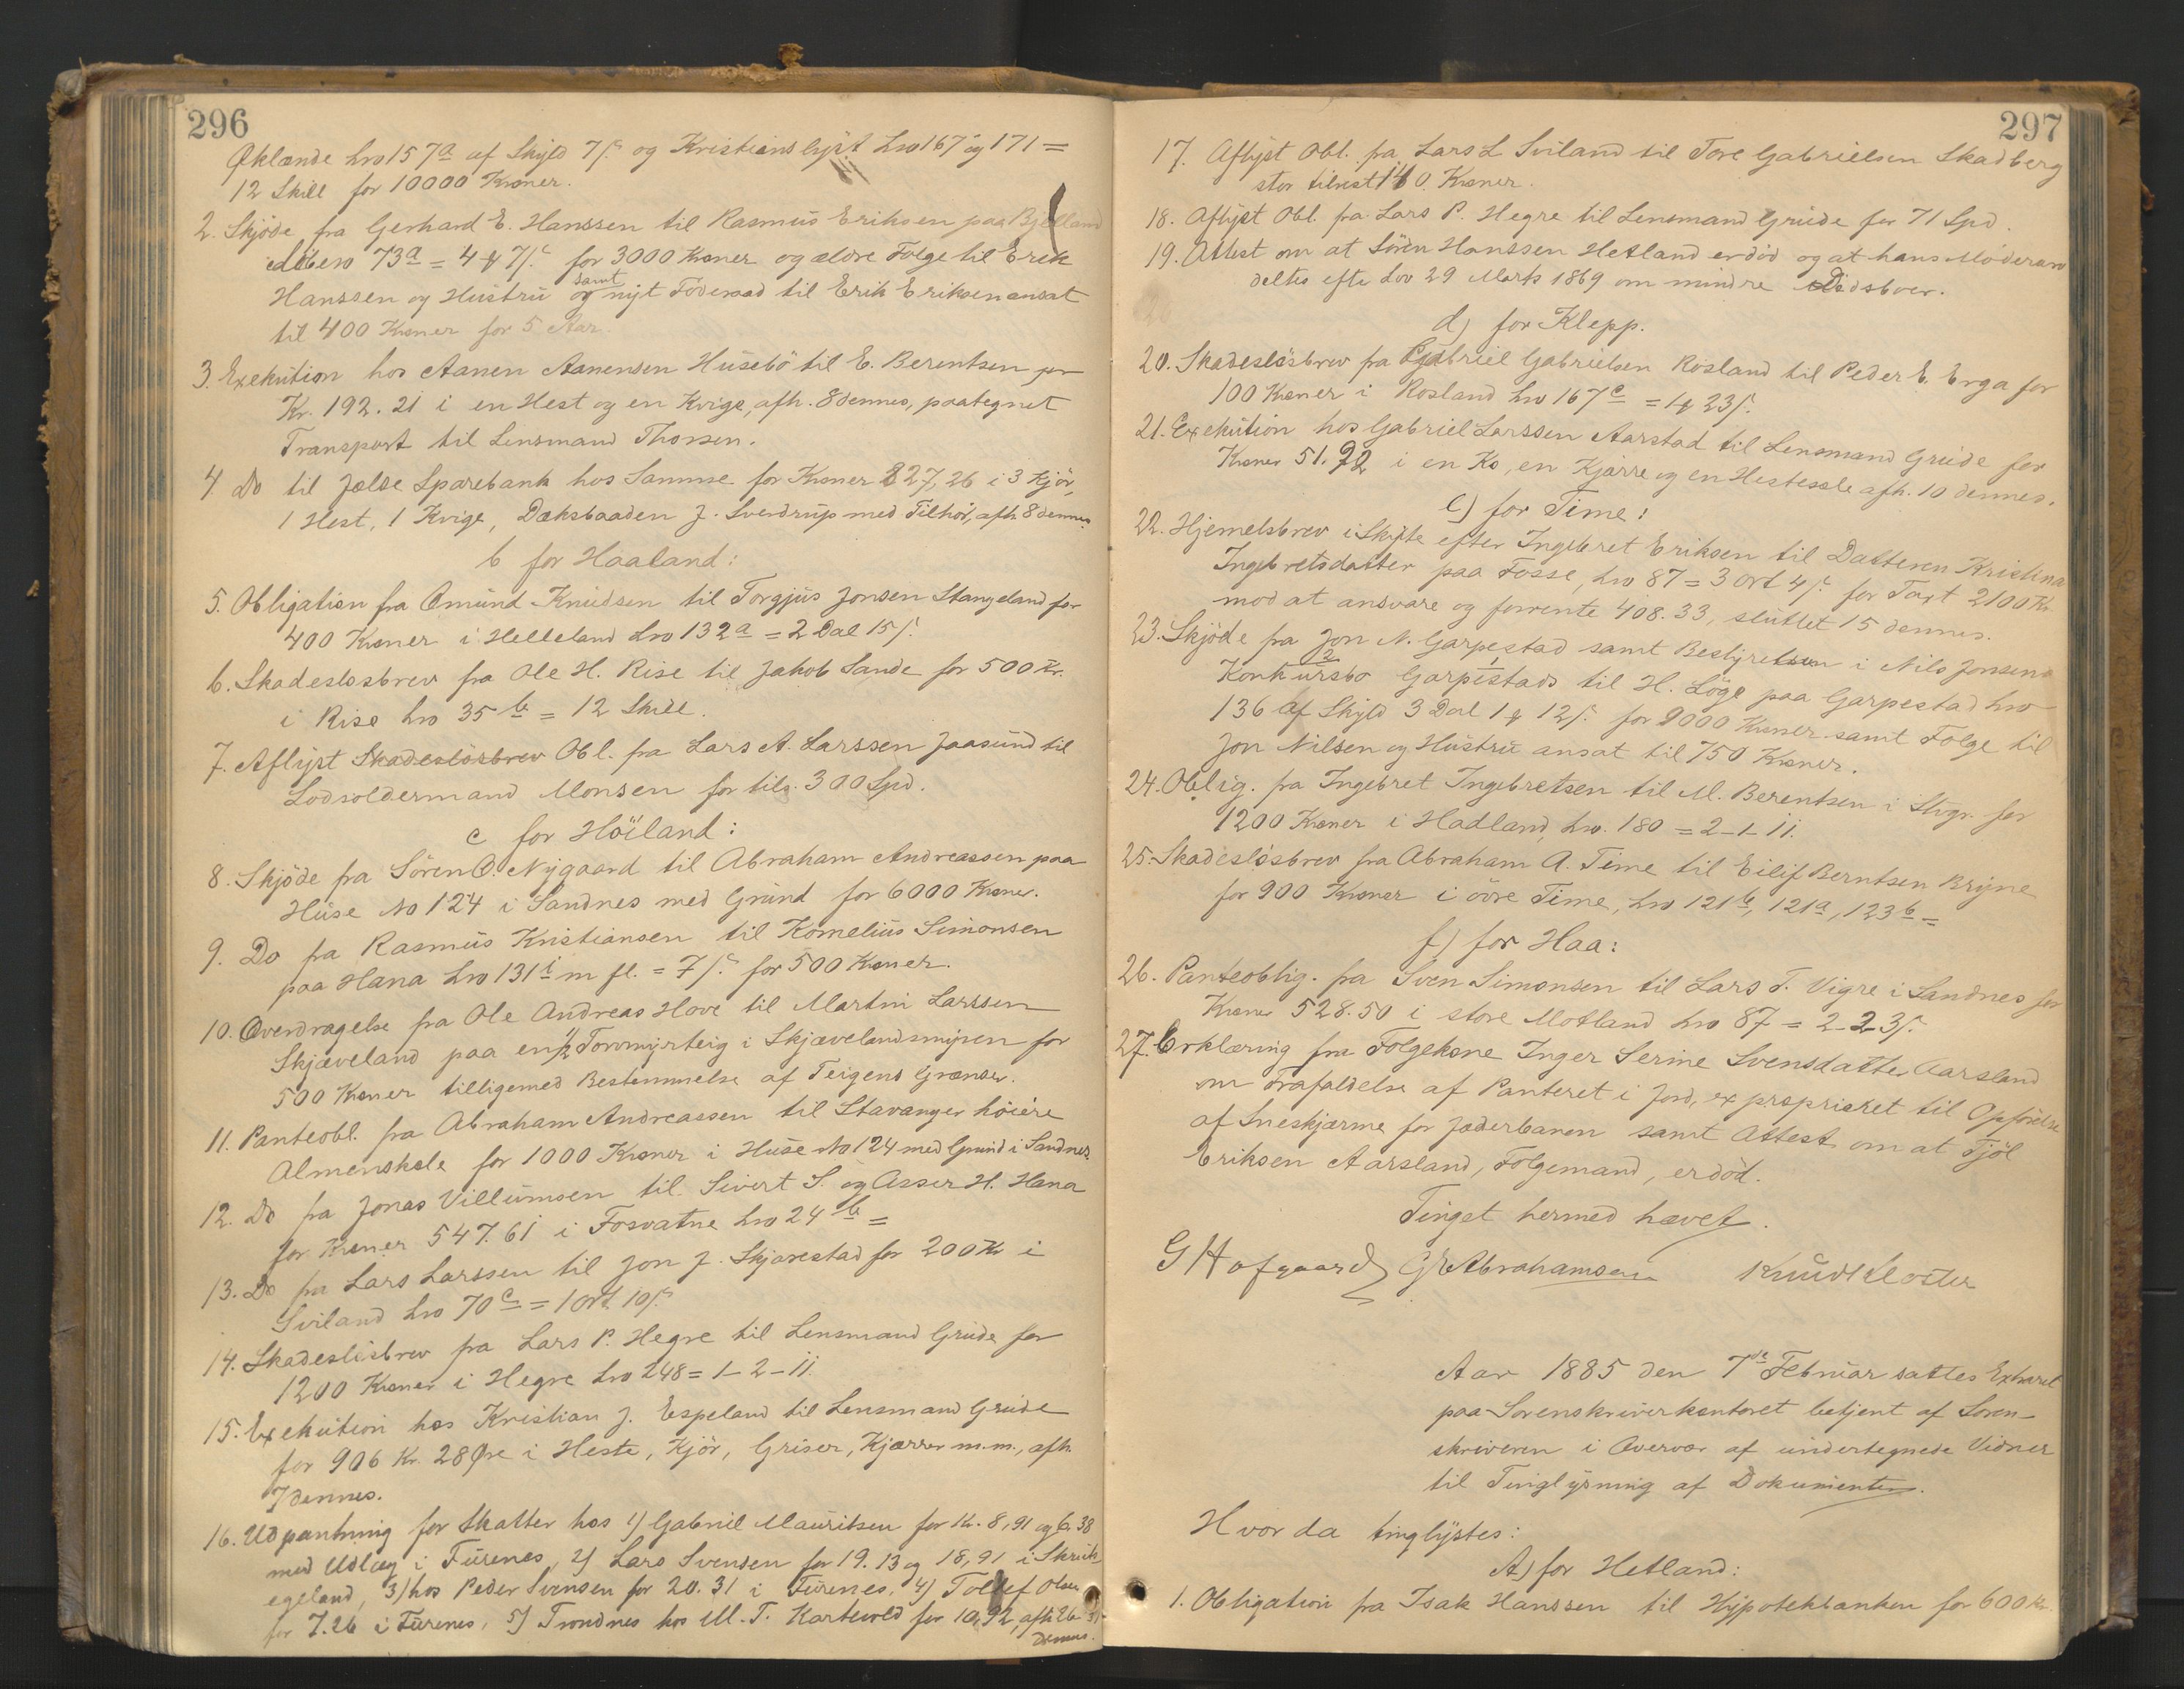 296
Öklande Lno 157a af Skyld 7ſ. og Kristianslyst Lno 167 og 171 =
12 Skill for 10000 Kroner.
2. Skjöde fra Gerhard E. Hanssen til Rasmus Eriksen paa Bjelland
Löbeno 73a = 4 ₰ 7ſ. for 3000 Kroner og ældre Folge til Erik
Hanssen og Hustru og samt nyt Föderaad til Erik Eriksen ansat
til 400 Kroner for 5 Aar.
3. Exekution hos Aanen Aanensen Husebö til E. Berentsen for
Kr. 192.21 i en Hest og en Kvige, afh. 8 dennes, paategnet
Transport til Lensmand Thorsen.
4. Do til Jelse Sparebank hos Samme for Kroner 827,26 i 3 Kjör,
1 Hest, 1 Kvige, Dæksbaaden J. Sverdrup med Tilhör, afh. 8 dennes.
b for Haaland:
5. Obligation fra Omund Knudsen til Torgjus Jonsen Stangeland for
400 Kroner i Helleland Lno 132a = 2 Dal 15ſ.
6. Skadeslosbrev fra Ole H. Rise til Jakob Sande for 500 Kr.
i Rise Lno 35b = 12 Skill.
7. Aflyst Skadeslösbrev Obl. fra Lars A. Larssen Jaasund til
Lodsoldermand Monsen for tils. 300 Spd.
c for Höiland:
8. Skjöde fra Sören O. Nygaard til Abraham Andreassen paa
Huse No 124 i Sandnes med Grund for 6000 Kroner.
9. Do fra Rasmus Kristiansen til Kornelius Simonsen
paa Hana Lno 131i m fl. = 7ſ. for 500 Kroner.
10. Overdragelse fra Ole Andreas Hove til Martin Larssen
Skjæveland paa en 1/2 Torvmyrteig i Skjævelandsmyren for
500 Kroner tilligemed Bestemmelse af Teigens Grænser.
11. Panteobl. fra Abraham Andreassen til Stavanger höiere
Almenskole for 1000 Kroner i Huse No 124 med Grund i Sandnes
12. Do fra Jonas Villumsen til Sivert S. og Asser H. Hana
for Kroner 547.61 i Fosvatne Lno 24b =
13. Do fra Lars Larssen til Jon J. Skjærestad for 200 Kr i
Sviland Lno 70c = 1 Ort 10ſ.
14. Skadeslösbrev fra Lars P. Hegre til Lensmand Grude for
1200 Kroner i Hegre Lno 248 = 1-2-11.
15. Exekution hos Kristian J. Espeland til Lensmand Grude
for 906 Kr. 28 Øre i Heste, Kjör, Griser, Kjærrer m.m., afh.
7 dennes.
16. Udpantning for Skatter hos 1) Gabriel Mauritsen for Kr. 8,91 og 6.38
med Udlæg i Furenes, 2) Lars Svensen for 19.13 og 18,91 i Skruk-
egeland, 3) hos Peder Svensen for 20.31 i Furenes, 4) Tollef Olsen
for 7.26 i Furenes, 5) Trondnes hos M. T. Kartevold for 10,92, afh. 26
dennes.
297
17. Aflyst Obl. fra Lars L Sviland til Tore Gabrielsen Skadberg
stor tilrest 140 Kroner.
18. Aflyst Obl. fra Lars P. Hegre til Lensmand Grude for 71 Spd.
19. Attest om at Sören Hanssen Hetland er död og at hans Möderarv
deltes efter Lov 29 Marts 1869 om mindre Dödsboer.
d) for Klepp.
20. Skadeslösbrev fra Gabriel Gabrielsen Rosland til Peder E. Erga for
100 Kroner i Rosland Lno 167c = 1 ₰ 23ſ.
21. Exekution hos Gabriel Larssen Aarstad til Lensmand Grude for
Kroner 51.92 i en Ko, en Kjærre og en Hestesele afh. 10 dennes.
e) for Time:
22. Hjemelsbrev i Skifte efter Ingebret Eriksen til Datteren Kristina
Ingebretsdatter paa Fosse, Lno 87 = 3 Ort 4ſ. for Taxt 2100 Kr.
mod at ansvare og forrente 408.33, sluttet 15 dennes.
23. Skjöde fra Jon N. Garpestad samt Bestyrelsen i Nils Jonsens
Konkursbo Garpestads til H. Löge paa Garpestad Lno
136 af Skyld 3 Dal 1 ₰ 12ſ. for 9000 Kroner samt Folge til
Jon Nilsen og Hustru ansat til 750 Kroner.
24. Oblig. fra Ingebret Ingebretsen til M. Berentsen i Stvgr. for
1200 Kroner i Hadland, Lno. 180 = 2-1-11.
25. Skadeslösbrev fra Abraham A. Time til Eilif Berntsen Bryne
for 900 Kroner i övre Time, Lno 121b, 121a, 123b =
f) for Haa:
26. Panteoblig. fra Sven Simonsen til Lars T. Vigre i Sandnes for
Kroner 528.50 i store Motland Lno 87 = 2-2-3ſ.
27. Erklæring fra Folgekone Inger Serine Svensdatter Aarsland
om Frafaldelse af Panteret i Jord, exproprieret til Opförelse
af Sneskjærme for Jæderbanen samt Attest om at Fjöl
Eriksen Aarsland, Folgemand, er död.
Tinget hermed hævet.
G Hofgaard G E Abrahamsen Knud Kloster
Aar 1885 den 7de Februar sattes Extraret
paa Sorenskriverkontoret betjent af Soren-
skriveren i Overvær af undertegnede Vidner
til Tinglysning af Dokumenter.
Hvor da tinglystes:
A) for Hetland:
1. Obligation fra Isak Hanssen til Hypotekbanken for 600 Kr.